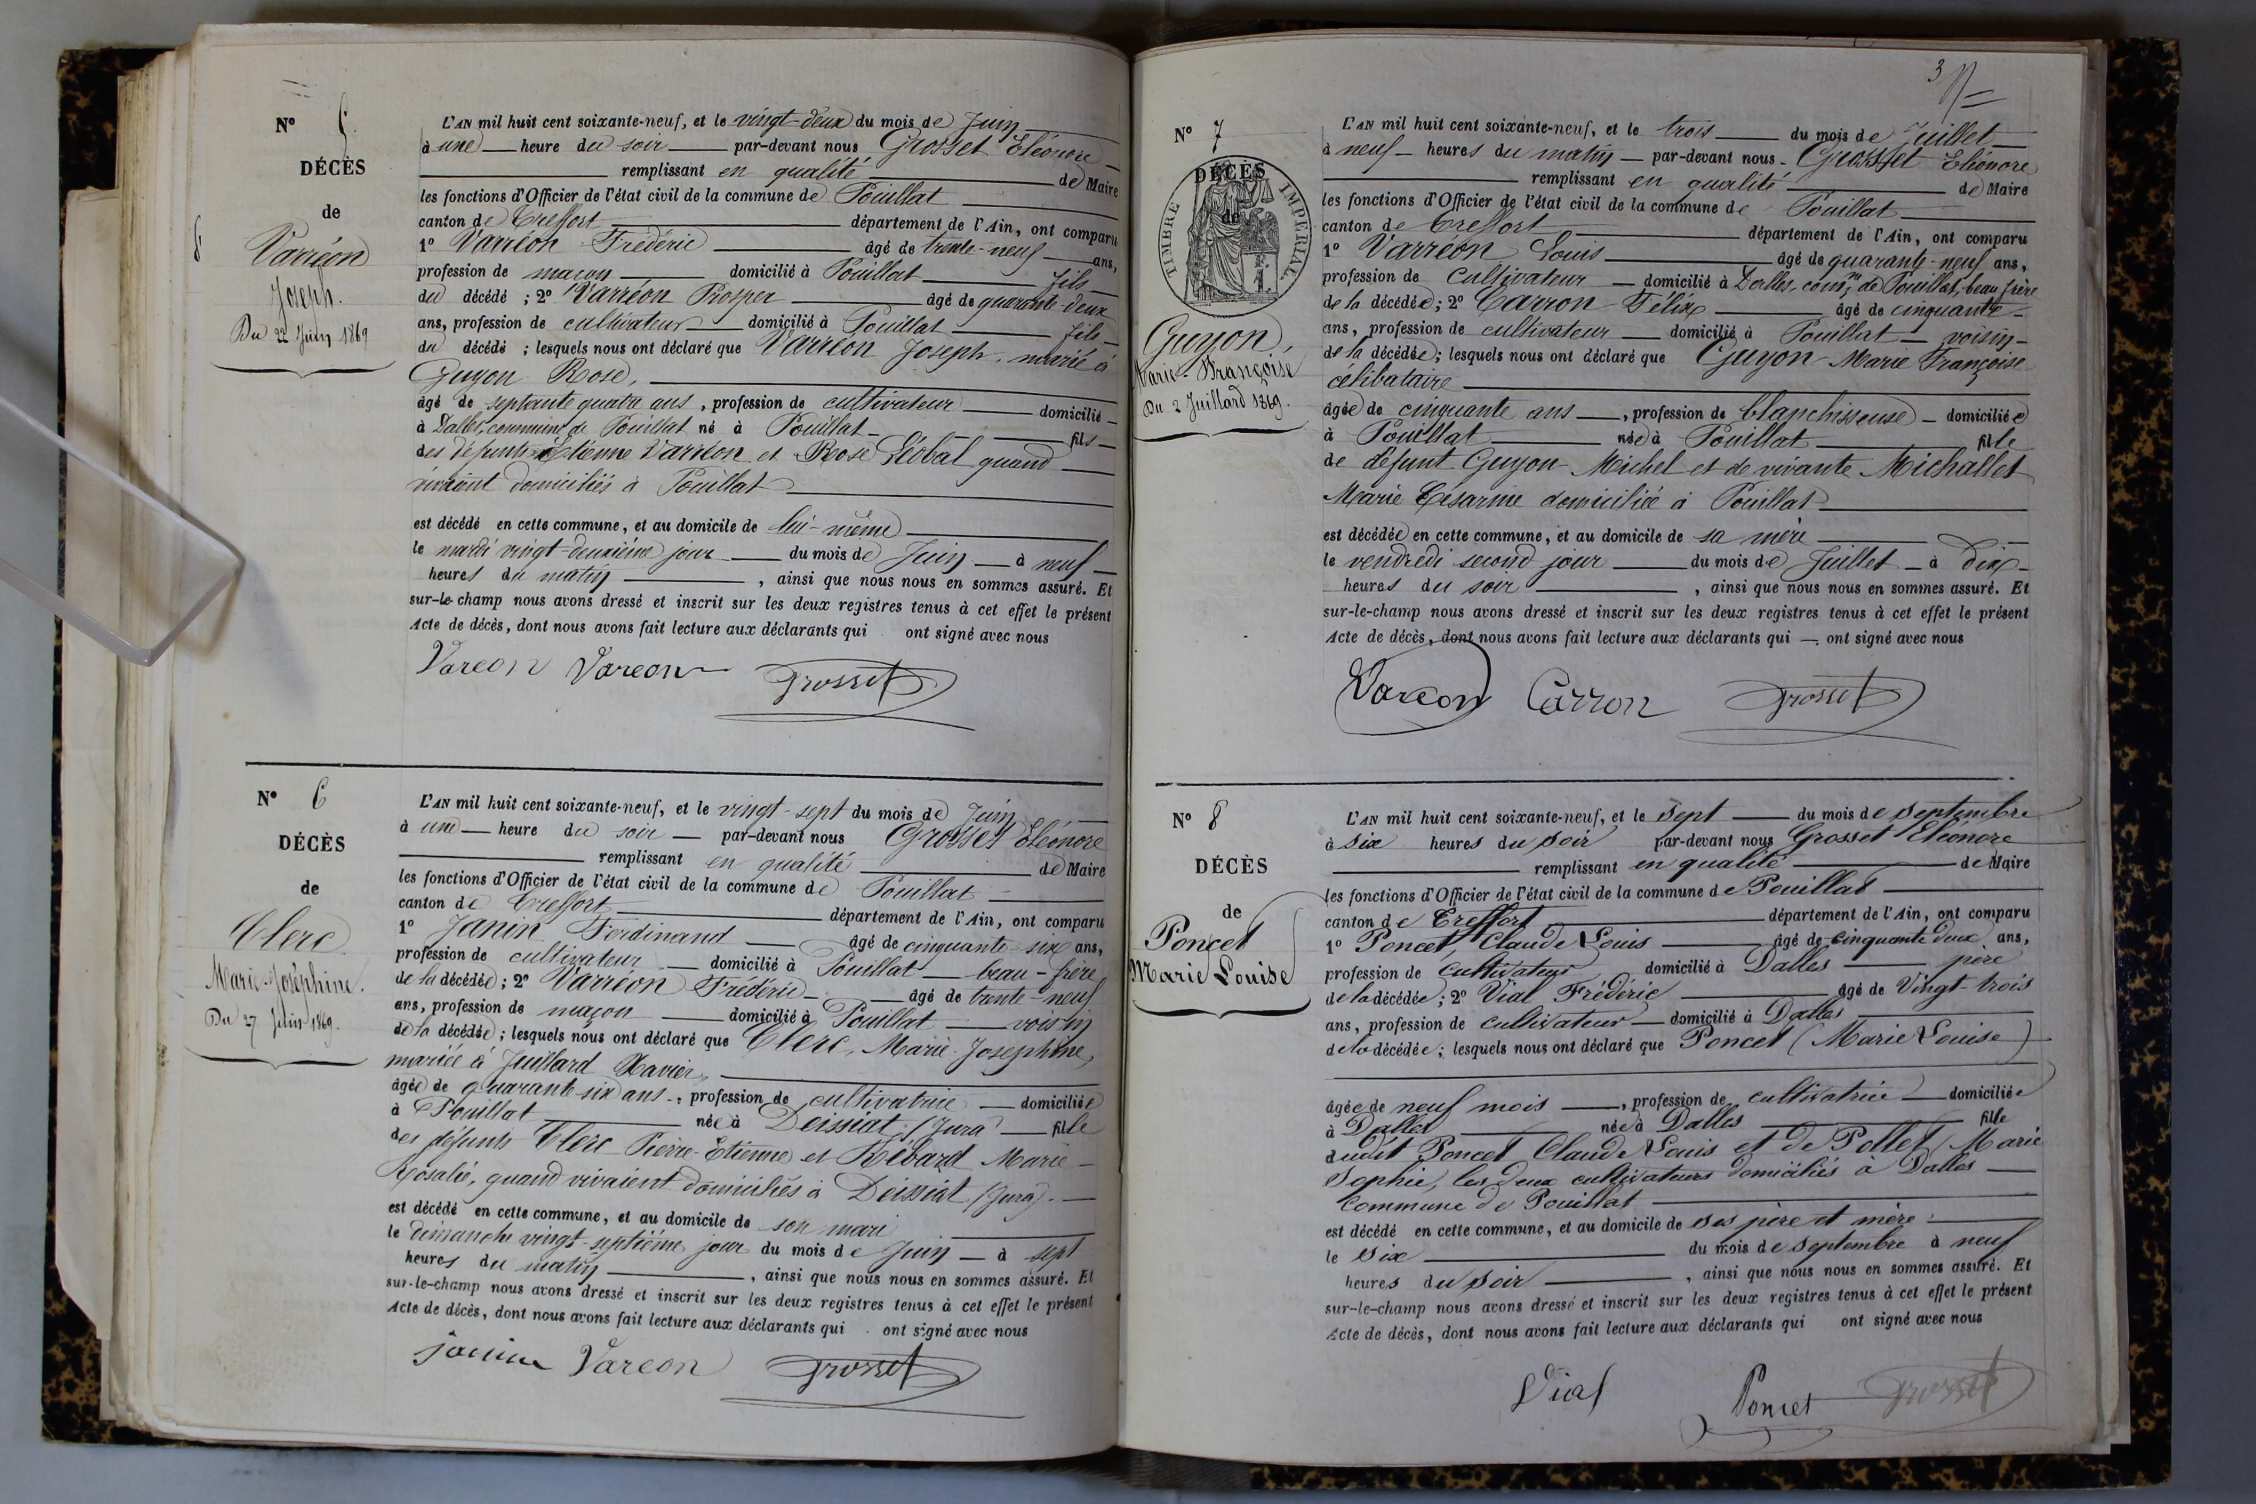 N° 5
DÉCÈS
de
Varréon
Joseph.
Du 22 Juin 1869
L'AN mil huit cent soixante-neuf, et le vingt-deux du mois de Juin
à une heure du soir par-devant nous Grosset Eléonore
remplissant en qualité de Maire
les fonctions d'Officier de l'état civil de la commune de Pouillat
canton de Treffort département de l'Ain, ont comparu
1° Varréon Frédéric âgé de trente-neuf ans,
profession de maçon domicilié à Pouillat fils
du décédé ; 2° Varréon Prosper âgé de quarante-deux
ans, profession de cultivateur domicilié à Pouillat fils
du décédé ; lesquels nous ont déclaré que Varréon Joseph, marié à
Guyon Rose,
âgé de septante quatre ans, profession de cultivateur domicilié
à Dalles, commune de Pouillat né à Pouillat fils
des défunts Etienne Varréon et Rose Léobal quand
vivaient domiciliés à Pouillat
est décédé en cette commune, et au domicile de lui-même
le mardi vingt-deuxième jour du mois de Juin à neuf
heures du matin, ainsi que nous nous en sommes assuré. Et
sur-le-champ nous avons dressé et inscrit sur les deux registres tenus à cet effet le présent
Acte de décès, dont nous avons fait lecture aux déclarants qui ont signé avec nous
Vareon Vareon Grosset
N° 6
DÉCÈS
de
Clerc
Marie-Joséphine.
Du 27 Juin 1869.
L'AN mil huit cent soixante-neuf, et le vingt-sept du mois de Juin
à une heure du soir par-devant nous Grosset Eléonore
remplissant en qualité de Maire
les fonctions d'Officier de l'état civil de la commune de Pouillat
canton de Treffort département de l'Ain, ont comparu
1° Janin Ferdinand âgé de cinquante-six ans,
profession de cultivateur domicilié à Pouillat beau-frère
de la décédée ; 2° Varréon Frédéric âgé de trente-neuf
ans, profession de maçon domicilié à Pouillat voisin
de la décédée ; lesquels nous ont déclaré que Clerc, Marie-Josephine,
mariée à Juillard Xavier,
âgée de quarante-six ans, profession de cultivatrice domiciliée
à Pouillat née à Deissiat (Jura) fille
des défunts Clerc Pierre-Etienne et Rébard Marie-
Rosalie, quand vivaient domiciliés à Deissiat (Jura).
est décédé en cette commune, et au domicile de son mari
le dimanche vingt-septième jour du mois de Juin à sept
heures du matin, ainsi que nous nous en sommes assuré. Et
sur-le-champ nous avons dressé et inscrit sur les deux registres tenus à cet effet le présent
Acte de décès, dont nous avons fait lecture aux déclarants qui ont signé avec nous
janin Vareon Grosset
3
N° 7
DÉCÈS
de
TIMBRE IMPÉRIAL
Guyon,
Marie-Françoise
Du 2 Juillard 1869.
L'AN mil huit cent soixante-neuf, et le trois du mois de Juillet
à neuf heures du matin par-devant nous Grosset Eléonore
remplissant en qualité de Maire
les fonctions d'Officier de l'état civil de la commune de Pouillat
canton de Treffort département de l'Ain, ont comparu
1° Varréon Louis âgé de quarante-neuf ans,
profession de cultivateur domicilié à Dalles, comne de Pouillat, beau frère
de la décédée ; 2° Carron Félix âgé de cinquante
ans, profession de cultivateur domicilié à Pouillat voisin
de la décédée ; lesquels nous ont déclaré que Guyon Marie Françoise
célibataire
âgée de cinquante ans, profession de blanchisseuse domiciliée
à Pouillat née à Pouillat fille
de défunt Guyon Michel et de vivante Michallet
Marie Césarine domiciliée à Pouillat
est décédée en cette commune, et au domicile de sa mère
le vendredi second jour du mois de Juillet à dix
heures du soir, ainsi que nous nous en sommes assuré. Et
sur-le-champ nous avons dressé et inscrit sur les deux registres tenus à cet effet le présent
Acte de décès, dont nous avons fait lecture aux déclarants qui ont signé avec nous
Vareon Carron Grosset
N° 8
DÉCÈS
de
Poncet
Marie Louise
L'AN mil huit cent soixante-neuf, et le sept du mois de septembre
à six heures du soir par-devant nous Grosset Eléonore
remplissant en qualité de Maire
les fonctions d'Officier de l'état civil de la commune de Pouillat
canton de Treffort département de l'Ain, ont comparu
1° Poncet, Claude Louis âgé de cinquante deux ans,
profession de cultivateur domicilié à Dalles père
de la décédée ; 2° Vial Frédéric âgé de Vingt-trois
ans, profession de cultivateur domicilié à Dalles
de la décédée ; lesquels nous ont déclaré que Poncet (Marie Louise)
âgée de neuf mois, profession de cultivatrice domiciliée
à Dalles née à Dalles fille
dudit Poncet Claude Louis et de Pollet Marie
Sophie, les deux cultivateurs domiciliés à Dalles
commune de Pouillat
est décédé en cette commune, et au domicile de ses père et mère
le six du mois de septembre à neuf
heures du soir, ainsi que nous nous en sommes assuré. Et
sur-le-champ nous avons dressé et inscrit sur les deux registres tenus à cet effet le présent
Acte de décès, dont nous avons fait lecture aux déclarants qui ont signé avec nous
Vial Poncet Grosset